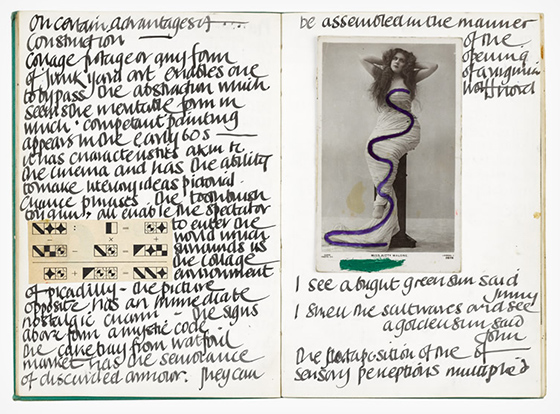 On certain, advantages of ....
Construction
Collage potage or any form
of junk yard art enables one
to bypass the abstraction which
seems the inevitable form in
which competent painting
appears in the early 60s
it has characteristics akin to
the cinema and has the ability
to make literary ideas pictorial.
Chance phrases the toothbrush
gun, all enable the spectator
to enter the
world which
surrounds us
the collage
environment
of picadilly - the picture
opposite has an immediate
nostalgic charm - the signs
above form a mystic code
the cane from
market has the semblance
of discarded armour. they can
be assembled in the manner
of the
opening
of a virginia
woolf novel
MISS
I see a bright green sun said
Jinny
I smell the saltwaves and see
a golden sun said
John
the juxtaposition of the of
sensory perceptions multiplied